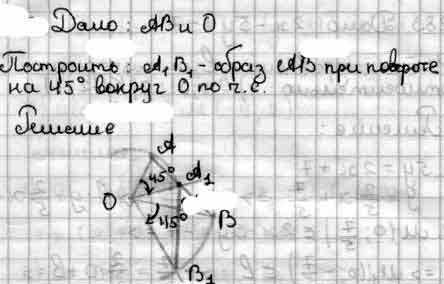 Дано: AB и O
Построить: A₁B₁ - образ AB при повороте
на 45° вокруг O по ч.с.
Решение
A
45°
A₁
O
45°
B
B₁